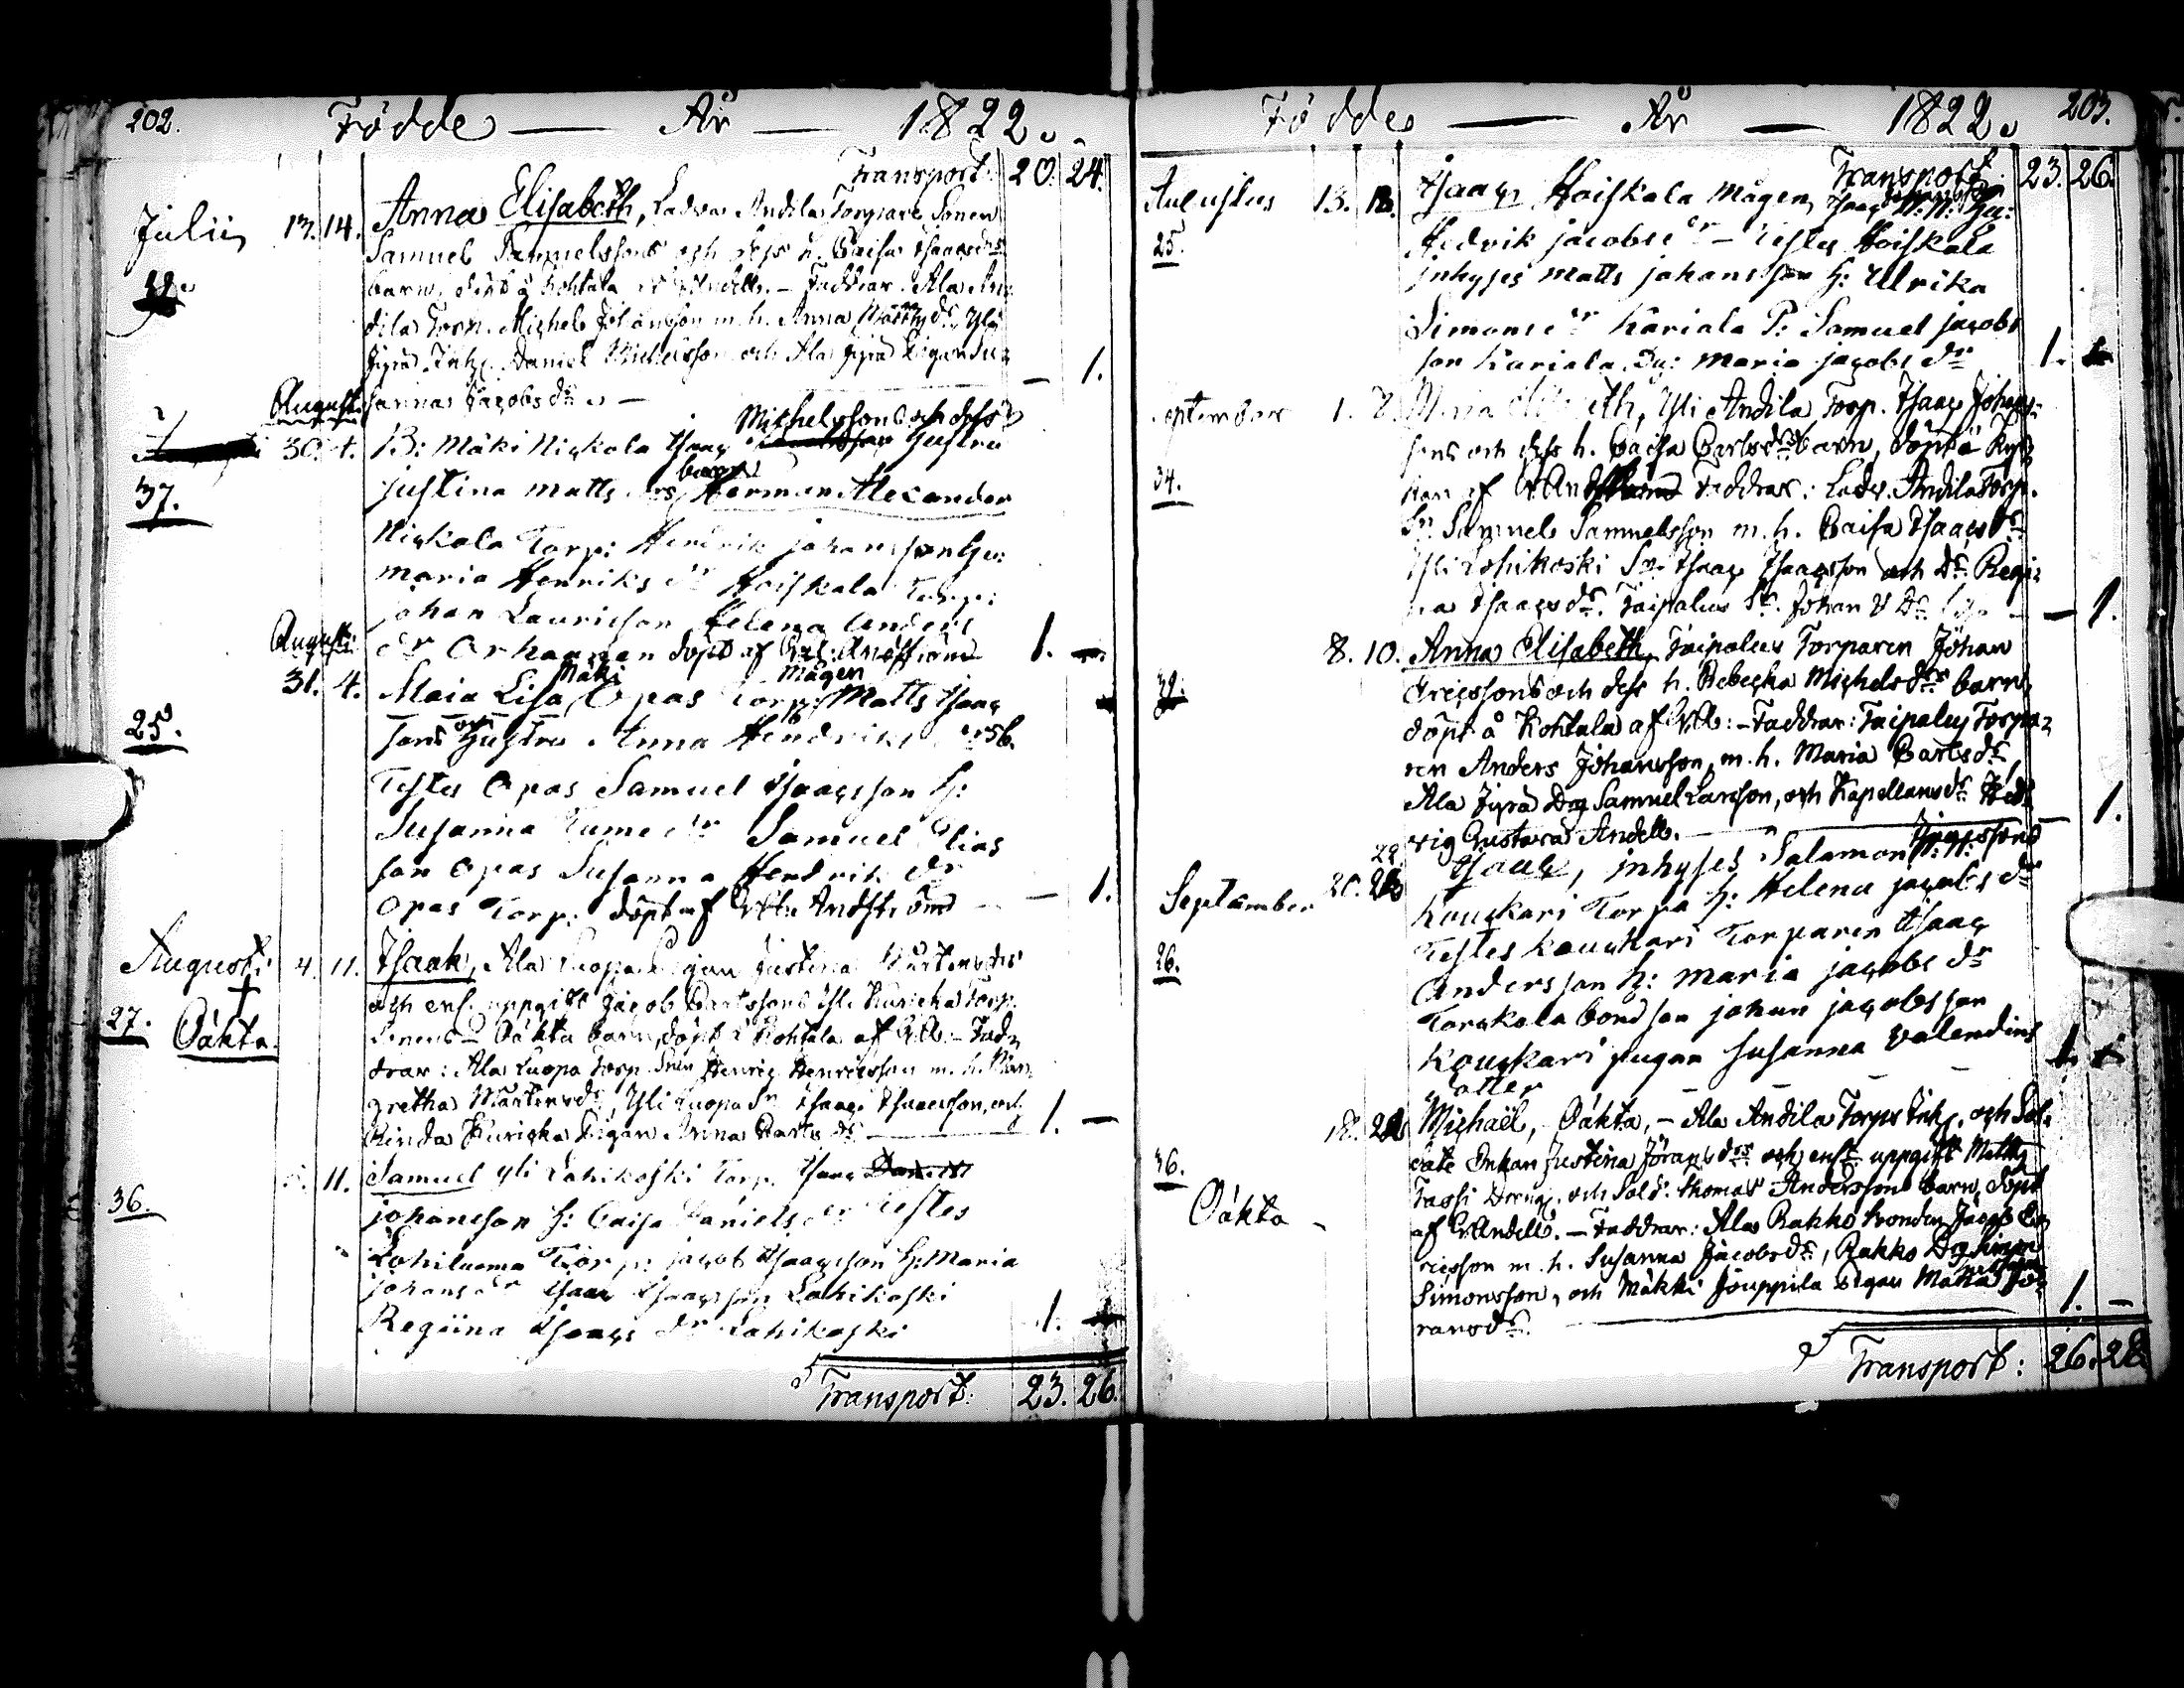 202. Födde — År — 1822.
Transport: 20. 24.
Julii 13. 14. Anna Elisabeth, Ladva Andila Torpare Sonen
Samuel Samuelssons och dess h. Caisa Isaacsdrs
barn, döpt å Kohtala af Andell. - Faddrar: Ala An-
dila Torp. Michel Johansson m. h. Anna Matts dr, Yli
Jyrä Inh. Daniel Michelsson och Ala Jyrä Pigan Su-
sanna Jacobs dr — — 1.
Augusti
Michelssons och dess
30. 4. B: Mäki Nickola Isaac hustru
barn
37. Justina Matts drs Herman Alexander
Nickola Torp: Hendrik Johansson hu:
Maria Henriks dr Hoiskala Torp:
Johan Lauricson Helena Anders
Augusti dr Orhaanen döpt af 1. —
Mäki Mågen
31. 4. Maia Lisa, Opas Torp: Matts Isaac
25. sons och hustru Anna Hendriks drs b.
Testes Opas Samuel Isaacsson h:
Susanna Tume dr Samuel Elias
son Opas Susanna Hendriks dr
Opas Torp: döpt af Andström — 1.
Augusti 4. 11. Isaak, Ala Luopa Pigan Justina Mårtens drs
och enl. uppgift Jacob Carlssons Yli Kuricka Torp.
27. Oäkta. Sonens Oäkta barn, döpt å Kohtala af - Fad-
drar: Ala Luopa Torp. Son Henric Henricsson m. h. Mar-
gretha Mårtens dr, Yli Luopa Sn Isaac Isaacsson, och
Rinda Kuricka Pigan Anna Carls dr — 1. —
11. Samuel Yli Lahikoski Torp. Isaac
36. Johansson h: Caisa Daniels dr Testes
Lohiluoma Torp: Jacob Isaacsson h: Maria
Johans dr Isaac Isaacsson Lahikoski
Regiina Isaacs dr Lahikoski 1.
Transport: 23. 26.
Födde — År — 1822. 203.
Transport 23. 26.
Augustus 13. 18. Isaac, Hoiskala Mågen, Isaac N: N: hu:
25. Hedvik Jacobs dr - Testes Hoiskala
Inhyses Matts Johansson h: Ulrika
Simons dr Kariala P: Samuel Jacobs
son Kariala Dg: Maria Jacobs dr 1.
eptember 1. 8. Maria Elisabeth, Yli Andila Torp. Isaac Johans-
sons och dess h. Caisa Carls drs barn, döpt å Kyr-
34. kan af Faddrar: Ladv. Andila Torp.
Sn Samuel Samuelsson m. h. Caisa Isaacs dr
Yli Lohikoski Sn Isaac Isaacsson och Dr Regi-
na Isaacs dr. Taipalus Sn. Johan — 1.
8. 10. Anna Elisabeth, Taipalus Torparen Johan
Ericssons och dess h. Rebecka Michels drs barn,
döpt å Kohtala af - Faddrar: Taipalus Torpa-
ren Anders Johansson, m. h. Maria Carls dr,
Ala Jyrä Dg Samuel Larsson, och Kapellans dr Hed-
vig Gustava Andell. — 1.
September 20. 22. Isaac, inhyses Salamon N: N:
Kouckari Torpa h: Helena Jacobs dr
Testes Kouckari Torparen Isaac
26. Andersson h: Maria Jacobs dr
Torckola bondson Johan Jacobsson
Kouckari pugan Susanna Valendins
dotter 1.
18. 22. Michaël, Oäkta, - Ala Andila Torps Inh. och Sol-
36. date Enkan Justina Jörans drs och enl. uppgift Matts
Tassi Dreng. och Sold: Thomas Anderssons barn, döpt
Oäkta af Andell. - Faddrar: Ala Rahko bonden Jacob E-
ricsson m. h. Susanna Jacobs dr, Rahko Dg Simon
Simonsson, och Mäkki Jouppila Pigan Maria Jö-
rans dr. — 1. —
Transport: 26. 28.